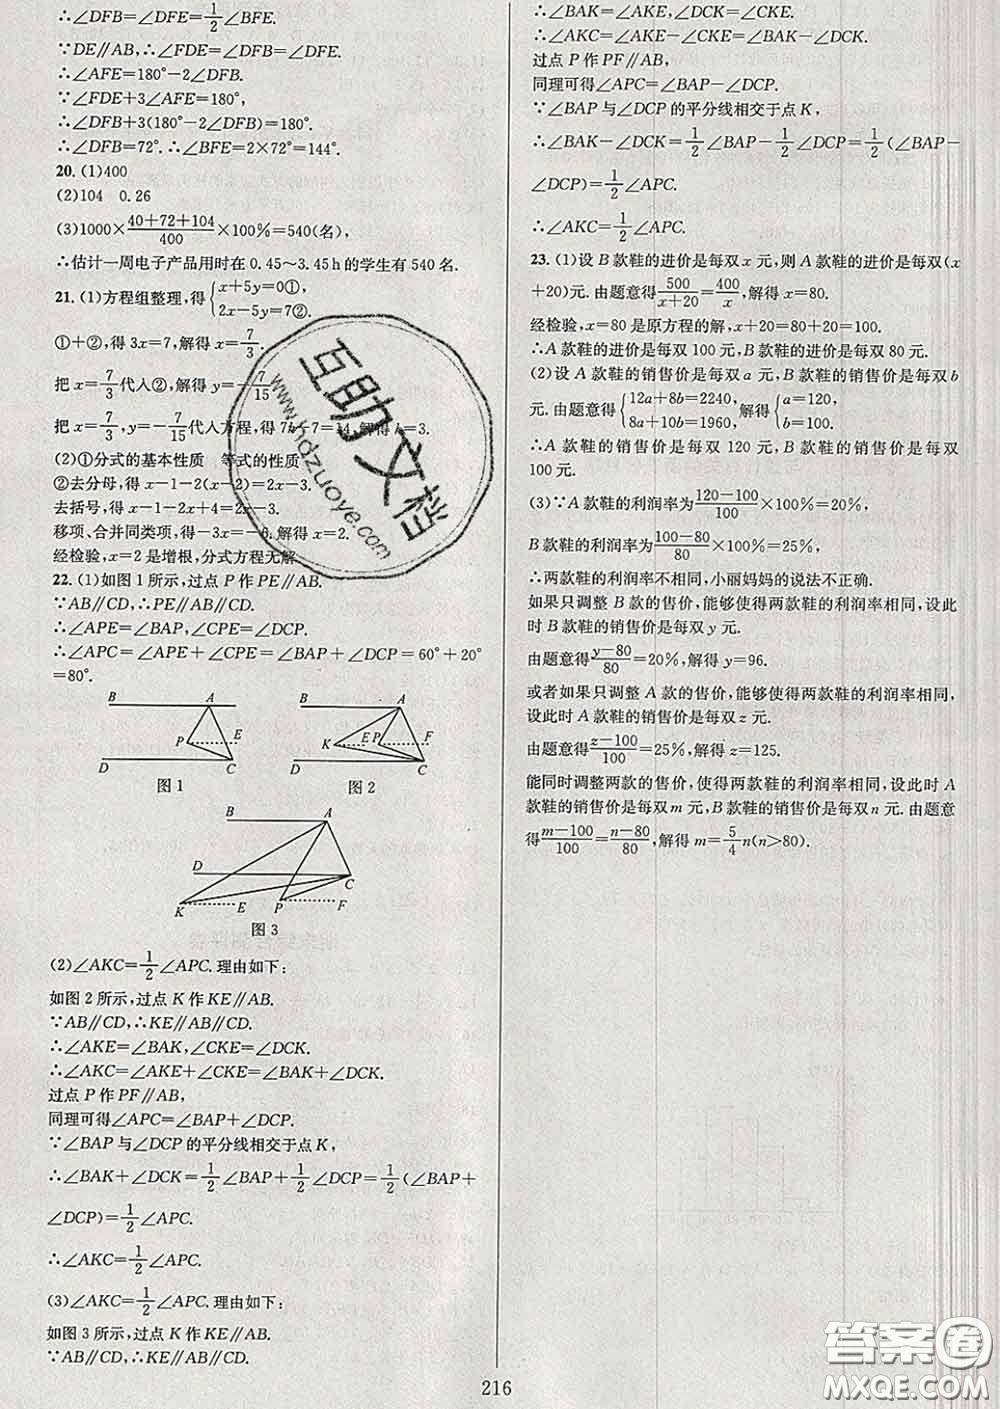 ∴∠DFB=∠DFE=1/2∠BFE.
∵DE∥AB,∴∠FDE=∠DFB=∠DFE.
∴∠AFE=180°-2∠DFB.
∵∠FDE+3∠AFE=180°,
∴∠DFB+3(180°-2∠DFB)=180°.
∴∠DFB=72°.∴∠BFE=2×72°=144°.
20. (1)400
(2)104 0.26
(3)1000×(40+72+104)/400×100%=540(名),
∴估计一周电子产品用时在 0.45~3.45 h 的学生有 540 名.
21. (1)方程组整理,得{x+5y=0①,
2x-5y=7②.
①+②,得 3x=7,解得 x=7/3.
把 x=7/3代入②,解得 y=-7/15.
把 x=7/3,y=-7/15代入方程,得 7k-7=14,解得 k=3.
(2)①分式的基本性质 等式的性质
②去分母,得 x-1-2(x-2)=2x-3.
去括号,得 x-1-2x+4=2x-3.
移项、合并同类项,得-3x=-6.解得 x=2.
经检验,x=2 是增根,分式方程无解.
22. (1)如图 1 所示,过点 P 作 PE∥AB.
∵AB∥CD,∴PE∥AB∥CD.
∴∠APE=∠BAP,∠CPE=∠DCP.
∴∠APC=∠APE+∠CPE=∠BAP+∠DCP=60°+20°
=80°.
B A P E D C
图 1
B A K E P F D C
图 2
B A D C K E P F
图 3
(2)∠AKC=1/2∠APC.理由如下:
如图 2 所示,过点 K 作 KE∥AB.
∵AB∥CD,∴KE∥AB∥CD.
∴∠AKE=∠BAK,∠CKE=∠DCK.
∴∠AKC=∠AKE+∠CKE=∠BAK+∠DCK.
过点 P 作 PF∥AB,
同理可得∠APC=∠BAP+∠DCP.
∵∠BAP 与∠DCP 的平分线相交于点 K,
∴∠BAK+∠DCK=1/2∠BAP+1/2∠DCP=1/2(∠BAP+
∠DCP)=1/2∠APC.
∴∠AKC=1/2∠APC.
(3)∠AKC=1/2∠APC.理由如下:
如图 3 所示,过点 K 作 KE∥AB.
∵AB∥CD,∴KE∥AB∥CD.
∴∠BAK=∠AKE,∠DCK=∠CKE.
∴∠AKC=∠AKE-∠CKE=∠BAK-∠DCK.
过点 P 作 PF∥AB,
同理可得∠APC=∠BAP-∠DCP.
∵∠BAP 与∠DCP 的平分线相交于点 K,
∴∠BAK-∠DCK=1/2∠BAP-1/2∠DCP=1/2(∠BAP-
∠DCP)=1/2∠APC.
∴∠AKC=1/2∠APC.
23. (1)设 B 款鞋的进价是每双 x 元,则 A 款鞋的进价是每双(x
+20)元.由题意得500/(x+20)=400/x,解得 x=80.
经检验,x=80 是原方程的解,x+20=80+20=100.
∴A 款鞋的进价是每双 100 元,B 款鞋的进价是每双 80 元.
(2)设 A 款鞋的销售价是每双 a 元,B 款鞋的销售价是每双 b
元.由题意得{12a+8b=2240, 8a+10b=1960,解得{a=120, b=100.
∴A 款鞋的销售价是每双 120 元,B 款鞋的销售价是每双
100 元.
(3)∵A 款鞋的利润率为(120-100)/100×100%=20%,
B 款鞋的利润率为(100-80)/80×100%=25%,
∴两款鞋的利润率不相同,小丽妈妈的说法不正确.
如果只调整 B 款的售价,能够使得两款鞋的利润率相同,设此
时 B 款鞋的销售价是每双 y 元.
由题意得(y-80)/80=20%,解得 y=96.
或者如果只调整 A 款的售价,能够使得两款鞋的利润率相同,
设此时 A 款鞋的销售价是每双 z 元.
由题意得(z-100)/100=25%,解得 z=125.
能同时调整两款的售价,使得两款鞋的利润率相同,设此时 A
款鞋的销售价是每双 m 元,B 款鞋的销售价是每双 n 元.由题意
得(m-100)/100=(n-80)/80,解得 m=5/4n(n>80).
216
互助文档
www.hdzuoye.com
答案圈
MXQE.COM